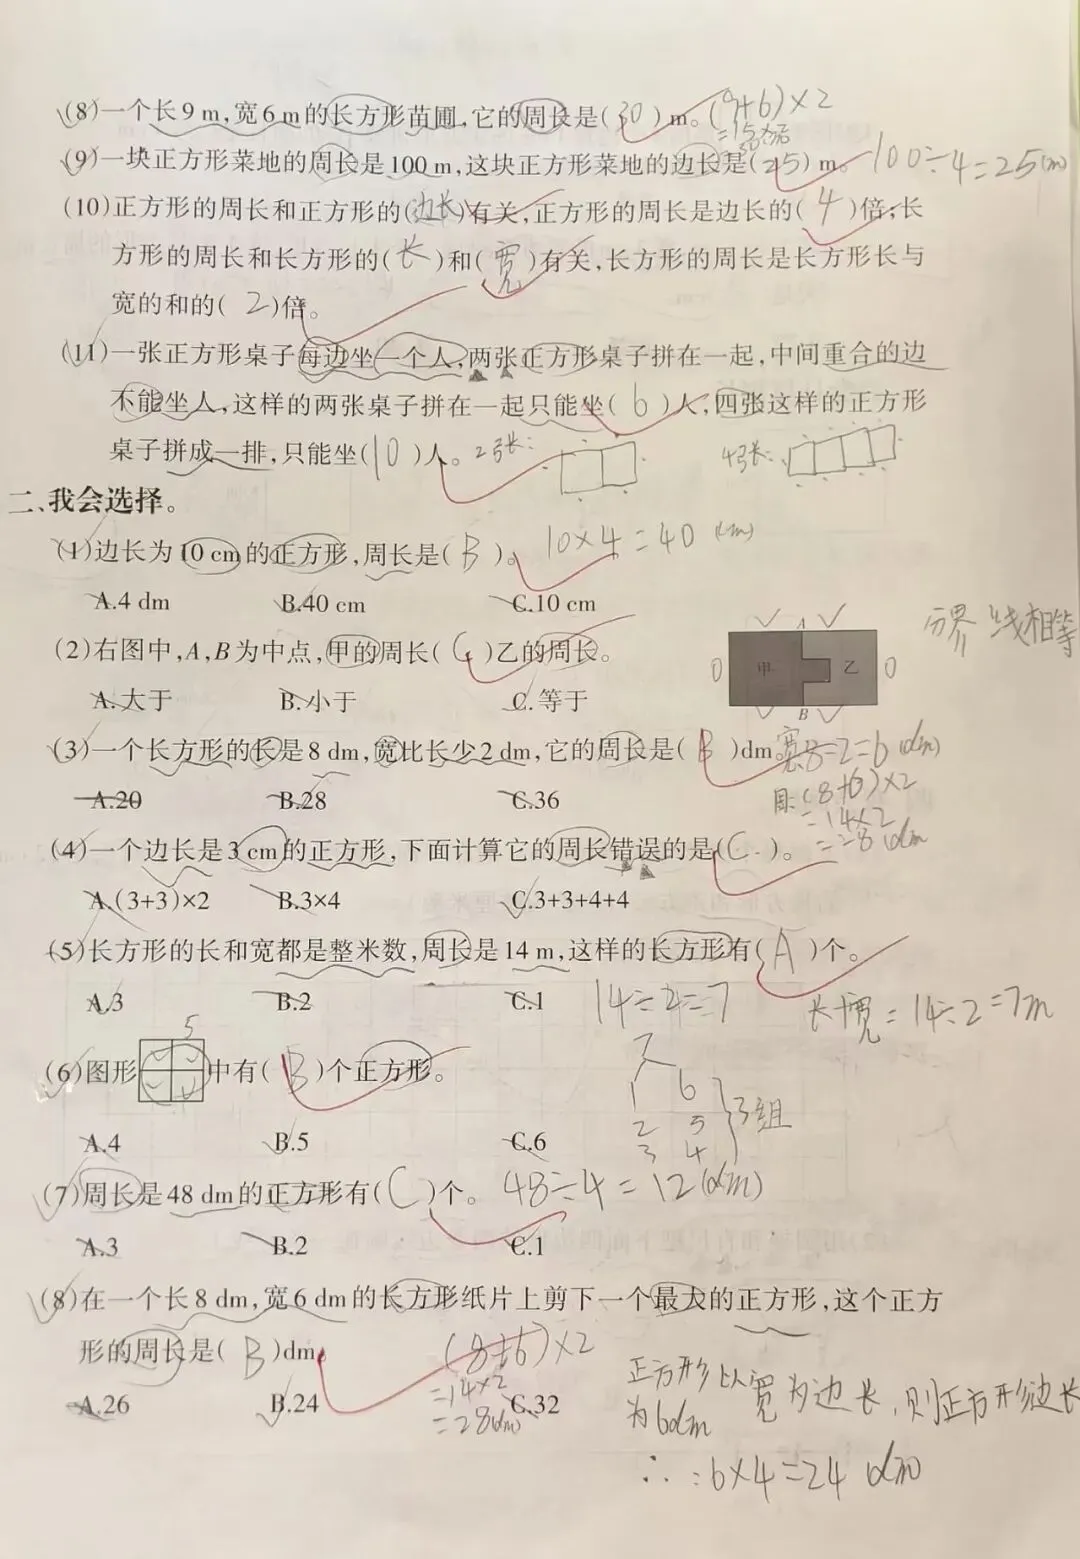 (8)一个长9 m,宽6 m的长方形苗圃,它的周长是(30)m。(9+6)×2
(9)一块正方形菜地的周长是100 m,这块正方形菜地的边长是(25)m。100÷4=25(m)
(10)正方形的周长和正方形的(边长)有关,正方形的周长是边长的(4)倍;长
方形的周长和长方形的(长)和(宽)有关,长方形的周长是长方形长与
宽的和的(2)倍。
(11)一张正方形桌子每边坐一个人,两张正方形桌子拼在一起,中间重合的边
不能坐人,这样的两张桌子拼在一起只能坐(6)人,四张这样的正方形
桌子拼成一排,只能坐(10)人。2张: 4张:
二、我会选择。
(1)边长为10 cm的正方形,周长是(B)。10×4=40(cm)
A.4 dm B.40 cm C.10 cm
分界线相等
(2)右图中,A,B为中点,甲的周长(C)乙的周长。
A
0 甲 乙 0
B
A.大于 B.小于 C.等于
(3)一个长方形的长是8 dm,宽比长少2 dm,它的周长是(B)dm。宽:8-2=6(dm)
A.20 B.28 C.36
周:(8+6)×2
=14×2
=28 dm
(4)一个边长是3 cm的正方形,下面计算它的周长错误的是(C)。
A.(3+3)×2 B.3×4 C.3+3+4+4
(5)长方形的长和宽都是整米数,周长是14 m,这样的长方形有(A)个。
A.3 B.2 C.1 14÷2=7 长+宽=14÷2=7m
7
1 6
2 5
3 4
3组
5
(6)图形 中有(B)个正方形。
A.4 B.5 C.6
(7)周长是48 dm的正方形有(C)个。48÷4=12(dm)
A.3 B.2 C.1
(8)在一个长8 dm,宽6 dm的长方形纸片上剪下一个最大的正方形,这个正方
形的周长是(B)dm。(8+6)×2
=14×2
=28(dm)
A.26 B.24 C.32
正方形以宽为边长,则正方形边长
为6dm
∴:6×4=24 dm